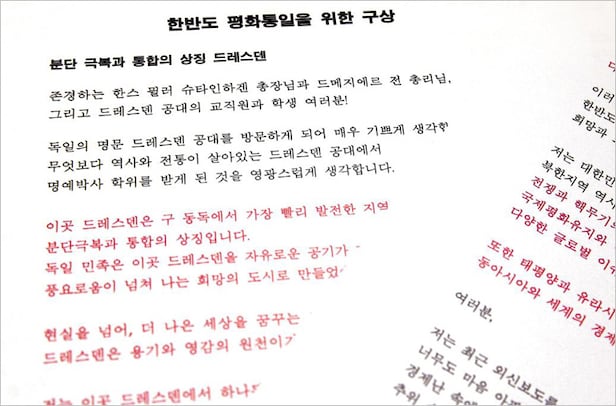 한반도 평화통일을 위한 구상
분단 극복과 통합의 상징 드레스덴
존경하는 한스 뮐러 슈타인하겐 총장님과 드메지에르 전 총리님,
그리고 드레스덴 공대의 교직원과 학생 여러분!
독일의 명문 드레스덴 공대를 방문하게 되어 매우 기쁘게 생각합
무엇보다 역사와 전통이 살아있는 드레스덴 공대에서
명예박사 학위를 받게 된 것을 영광스럽게 생각합니다.
이곳 드레스덴은 구 동독에서 가장 빨리 발전한 지역
분단극복과 통합의 상징입니다.
독일 민족은 이곳 드레스덴을 자유로운 공기가
풍요로움이 넘쳐 나는 희망의 도시로 만들었
현실을 넘어, 더 나은 세상을 꿈꾸는
드레스덴은 용기와 영감의 원천이
저는 이곳 드레스덴에서 하나
이러
한반도
희망과
저는 대한민
북한지역 역시
전쟁과 핵무기
국제평화유지와
다양한 글로벌 이슈
또한 태평양과 유라시
동아시아와 세계의 경제
여러분,
저는 최근 외신보도를
너무도 마음 아
경제난 속에
추위 속